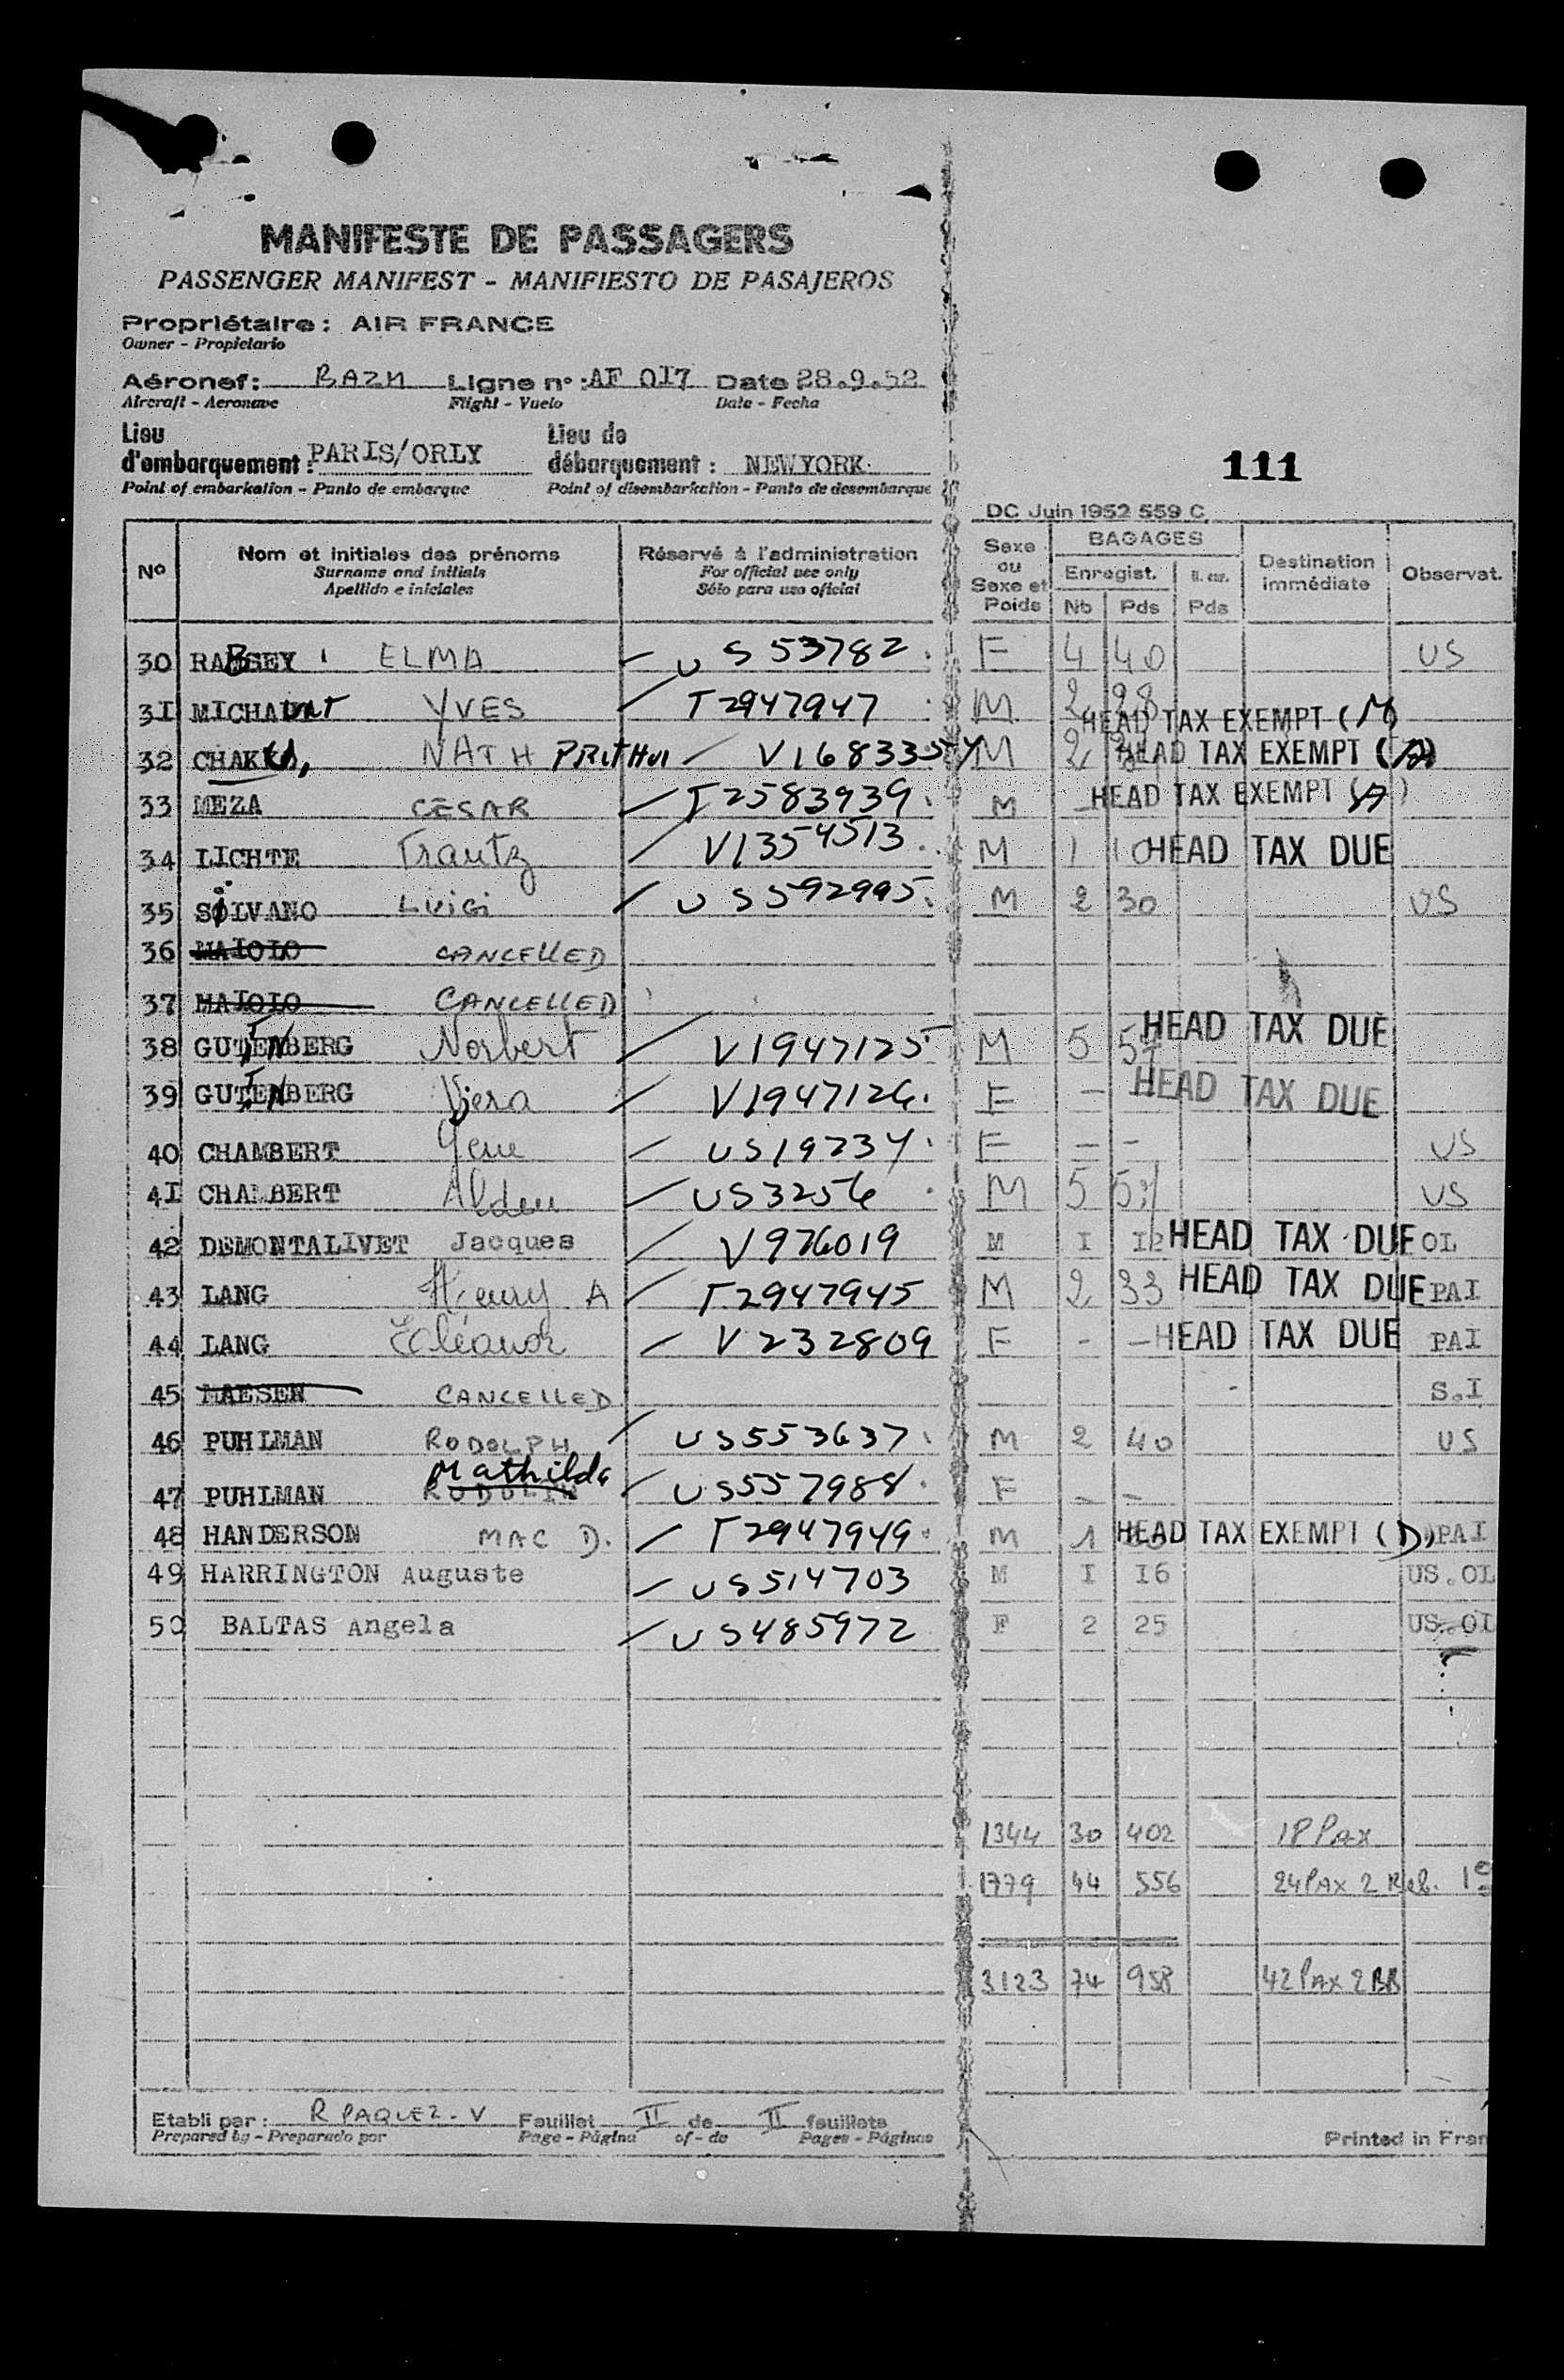 MANIFESTE DE PASSAGERS
PASSENGER MANIFEST - MANIFIESTO DE PASAJEROS
Propriétaire : AIR FRANCE
Owner - Propietario
Aéronef : BAZM Ligne n° : AF 017 Date 28.9.52
Aircraft - Aeronave Flight - Vuelo Date - Fecha
Lieu d'embarquement : PARIS/ORLY Lieu de débarquement : NEWYORK.
Point of embarkation - Punto de embarque Point of disembarkation - Punto de desembarque
111
DC Juin 1952 559 C
Nº Nom et initiales des prénoms Réservé à l'administration Sexe ou Sexe et Poids BAGAGES Destination immédiate Observat.
Surname and initials For official use only Enregist. n. enr.
Apellido e iniciales Sólo para uso oficial Nb Pds Pds
30 RABSEY ELMA US 53782 F 4 40 US
31 MICHAUT YVES T2947947 M 2 28 HEAD TAX EXEMPT (M)
32 CHAK NATH PRITHVI V1683354 M 2 HEAD TAX EXEMPT
33 MEZA CESAR T2583939 M - HEAD TAX EXEMPT (A)
34 LICHTE Frantz V1354513 M 1 10 HEAD TAX DUE
35 SILVANO LUIGI US592995 M 2 30 US
36 MAIOLO CANCELLED
37 MAIOLO CANCELLED
38 GUTTNBERG Norbert V1947125 M 5 57 HEAD TAX DUE
39 GUTTNBERG Viera V1947126 F - HEAD TAX DUE
40 CHAMBERT US19234 F - - US
41 CHAMBERT Alden US3256 M 5 57 US
42 DEMONTALIVET Jacques V976019 M I I2 HEAD TAX DUE OL
43 LANG Henry A T2947945 M 2 33 HEAD TAX DUE PAI
44 LANG Eléanor V232809 F - - HEAD TAX DUE PAI
45 MAESEN CANCELLED S.I
46 PUHLMAN RODOLPH US553637 M 2 40 US
47 PUHLMAN RODOLIN Mathilda US557988 F - -
48 HANDERSON MAC D. T2947949 M 1 HEAD TAX EXEMPT (D) PAI
49 HARRINGTON Auguste US514703 M I I6 US.OL
50 BALTAS Angela US485972 F 2 25 US.OL
1344 30 402 18 PAX
1779 44 556 24 PAX 2 Beb. 1e
3123 74 958 42 PAX 2 BB
Etabli par : R PAQUEZ. V Feuillet II de II feuillets
Prepared by - Preparado por Page - Página of - de Pages - Páginas
Printed in Fran